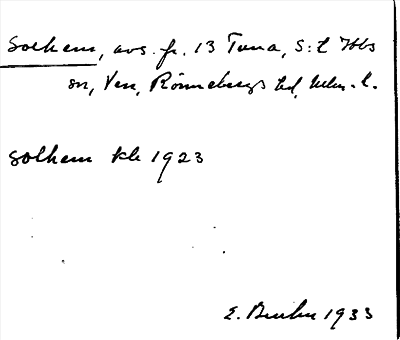 Solhem, avs. fr. 13 Tuna, S:t Ibbs
sn, Ven, Rönnebergs hd, Mlm. l.
Solhem kk 1923
E. 1933